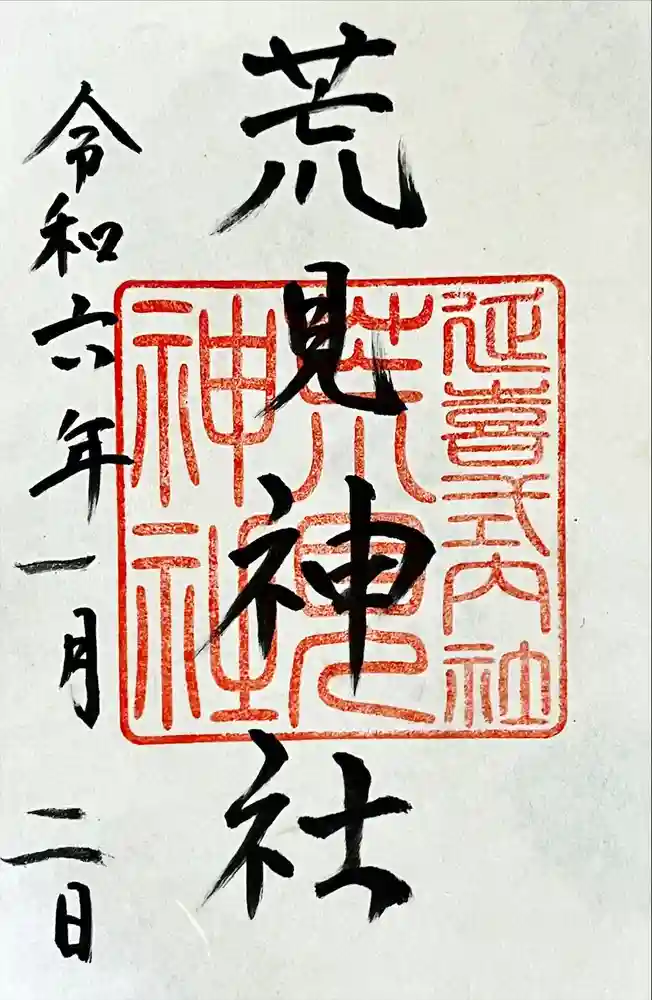 延喜式内社
荒見
神社
荒見神社
令和六年一月二日